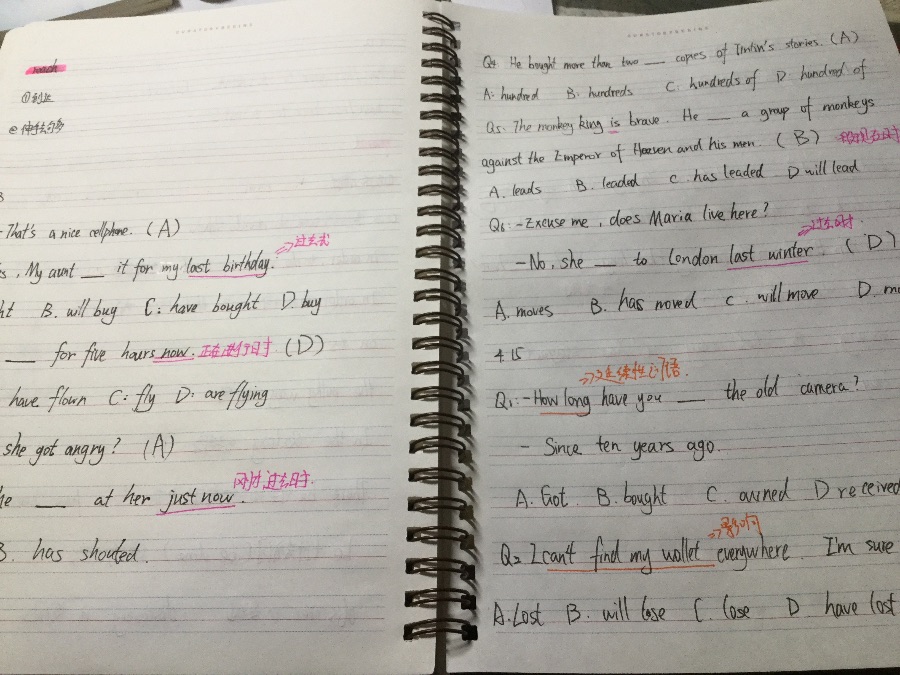 reach
①到达
That's a nice cellphone. (A)
s, My aunt __ it for my last birthday. ⇒过去式
ht B. will buy C: have bought D. buy
__ for five hours now. 正在进行时 (D)
have flown C: fly D: are flying
she got angry? (A)
he __ at her just now. 刚刚 过去时.
B. has shouted.
Q4 He bought more than two __ copies of stories. (A)
A: hundred B: hundreds C: hundreds of D hundred of
Q5: The monkey king is brave. He __ a group of monkeys
against the Emperor of Heaven and his men. (B)
A. leads B. leaded C. has leaded D will lead
Q6: -Excuse me, does Maria live here?
⇒过去时
-No, she __ to London last winter. (D)
A. moves B. has moved C. will move D. mo
4.15
⇒延续性
Q1:-How long have you __ the old camera?
- Since ten years ago.
A. Got B. bought C. owned D received
Q2 I can't find my wallet everywhere. I'm sure
A. Lost B. will lose C. lose D have lost